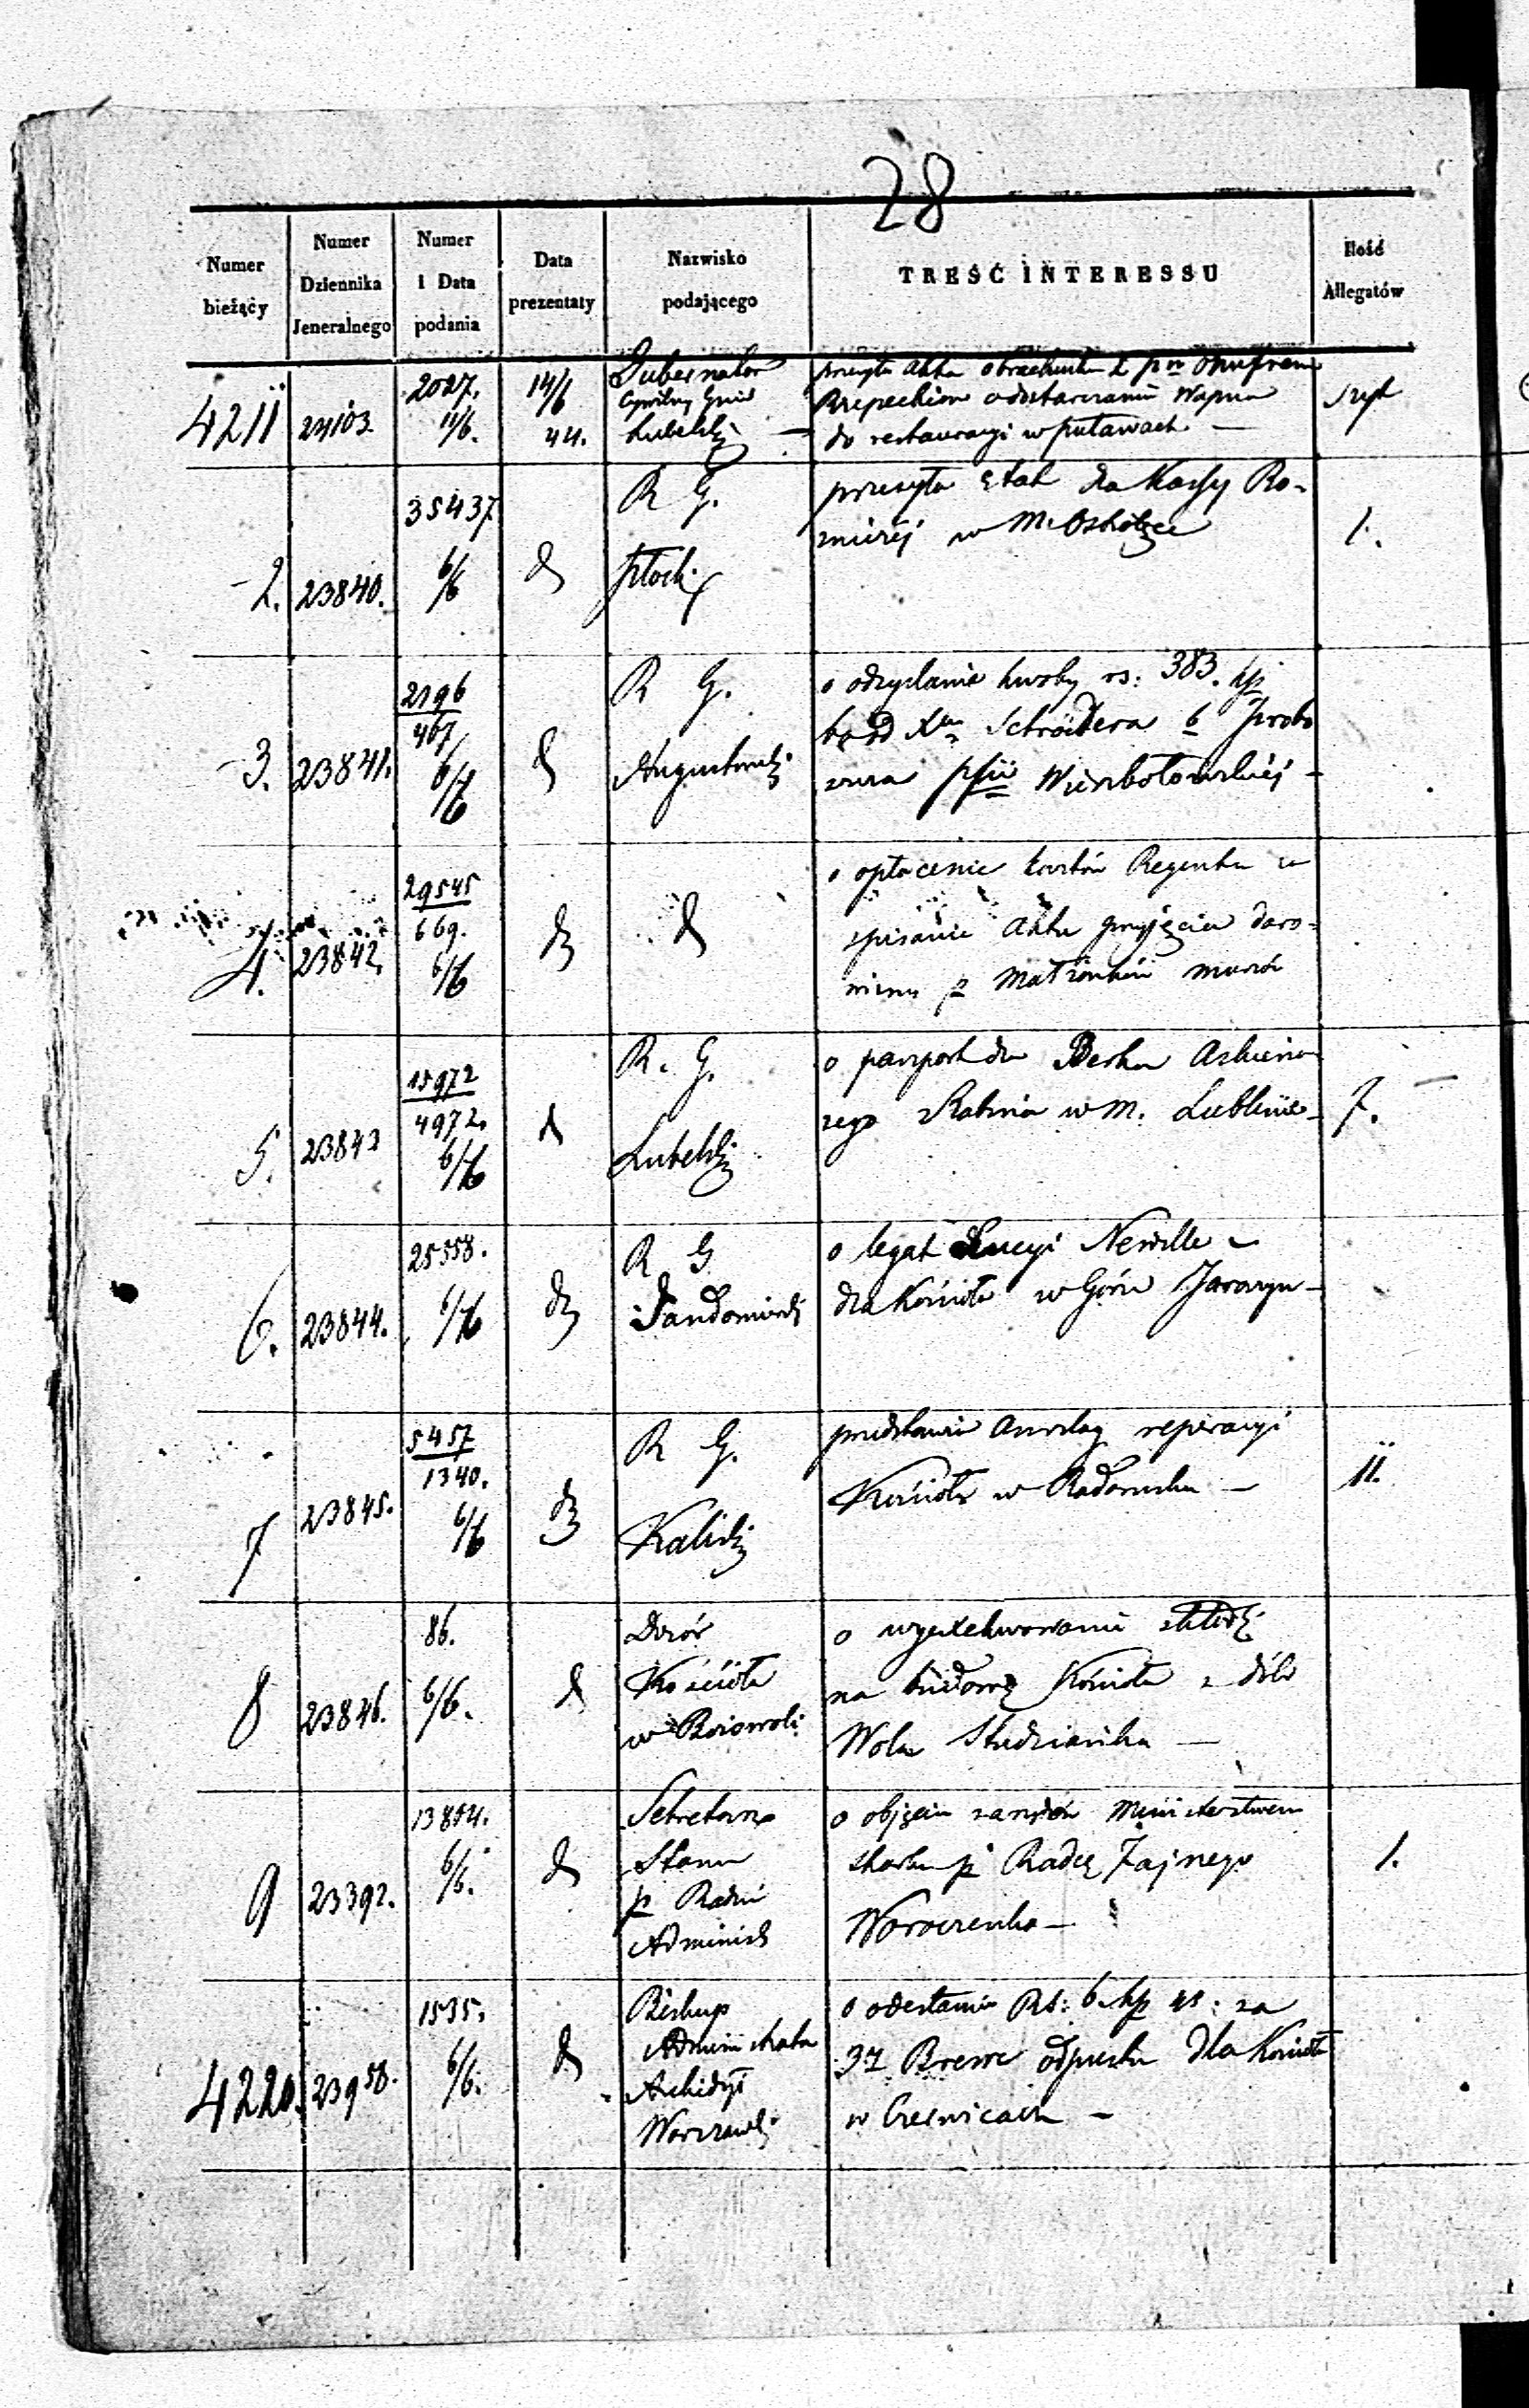 28
Numer bieżący
Numer Dziennika Jeneralnego
Numer i Data podania
Data prezentaty
Nazwisko podającego
TREŚĆ INTERESSU
Ilość Allegatów
4211
24103.
2027.
11/6.
14/6
44.
Gubernator
Cywilny
Lubelski
przesyła Akta obrachunku z
o dostarczaniu Wapna
do restauracyi w puławach. —
-2.
23840.
35437
6/6
R G.
Płocki
przesyła etat dla Kassy Bo-
żniczéj w M.
1.
-3.
23841.
2196
467
6/6
R G.
Augustowski
o odzyskanie kwoty rs: 383. kp
Schrödera b. probo
szcza Wierzbołowskiéj -
4.
23842.
29545
669.
6/6
o opłacenie kosztów Regenta za
spisanie Aktu przyjęcia daro-
wizny p Małżonków
5.
23843
15972
4972.
6/6
R. G.
Lubelski
o paszport dla Berka
Rabina w M. Lublinie -
7.
6.
23844.
25558.
6/6
R G
Sandomirski
o legat Lucyi
dla Kościoła w Górze
7
23845.
5457
1340.
6/6
R G.
Kaliski
przedstawia Anszlag reperacyi
Kościoła w Radomsku —
11.
8
23846.
86.
6/6.
Dozór
Kościoła
w Borowoli
o wyexekwowanie składki
na budowę Kościoła z dóbr
Wola Studziańska —
9
23392.
13804.
6/6.
Sekretarz
Stanu
p Radzie
Administ
o objęciu zarządu Ministerstwem
skarbu p Radcę Tajnego
Wronczenko —
1.
4220.
23958.
1535.
6/6.
Biskup
Administrator
Archidyec
Warszawski
o odesłanie Rs: 6. kp 41: za
37 Breve odpustu dla Kościoła
w —